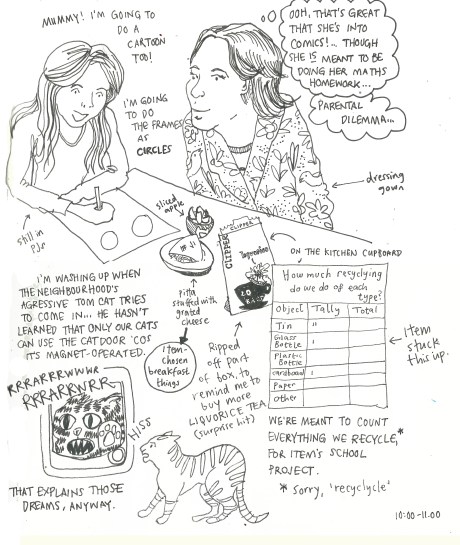 MUMMY! I'M GOING TO
DO A
CARTOON
TOO!
OOH, THAT'S GREAT
THAT SHE'S INTO
COMICS!... THOUGH
SHE IS MEANT TO BE
DOING HER MATHS
HOMEWORK...
PARENTAL
DILEMMA...
I'M GOING
TO DO
THE FRAMES
AS
CIRCLES
dressing
gown
still in
PJs
sliced
apple
Pitta
stuffed with
grated
cheese
Item-
chosen
breakfast
things
CLIPPER
CLIPPER
20
Ripped
off part
of box, to
remind me to
buy more
LIQUORICE TEA
(surprise hit)
ON THE KITCHEN CUPBOARD
How much recycling
do we do of each
type?
Object Tally Total
Tin "
Glass
Bottle ı
Plastic
Bottle
cardboard ı
Paper
other
Item
stuck
this up.
WE'RE MEANT TO COUNT
EVERYTHING WE RECYCLE,*
FOR ITEM'S SCHOOL
PROJECT.
* Sorry, 'recyclycle'
I'M WASHING UP WHEN
THE NEIGHBOURHOOD'S
AGRESSIVE TOM CAT TRIES
TO COME IN... HE HASN'T
LEARNED THAT ONLY OUR CATS
CAN USE THE CATDOOR 'COS
IT'S MAGNET-OPERATED.
RRRARRRWWWR
RRRARRWRR
HISS
THAT EXPLAINS THOSE
DREAMS, ANYWAY.
10:00-11.00